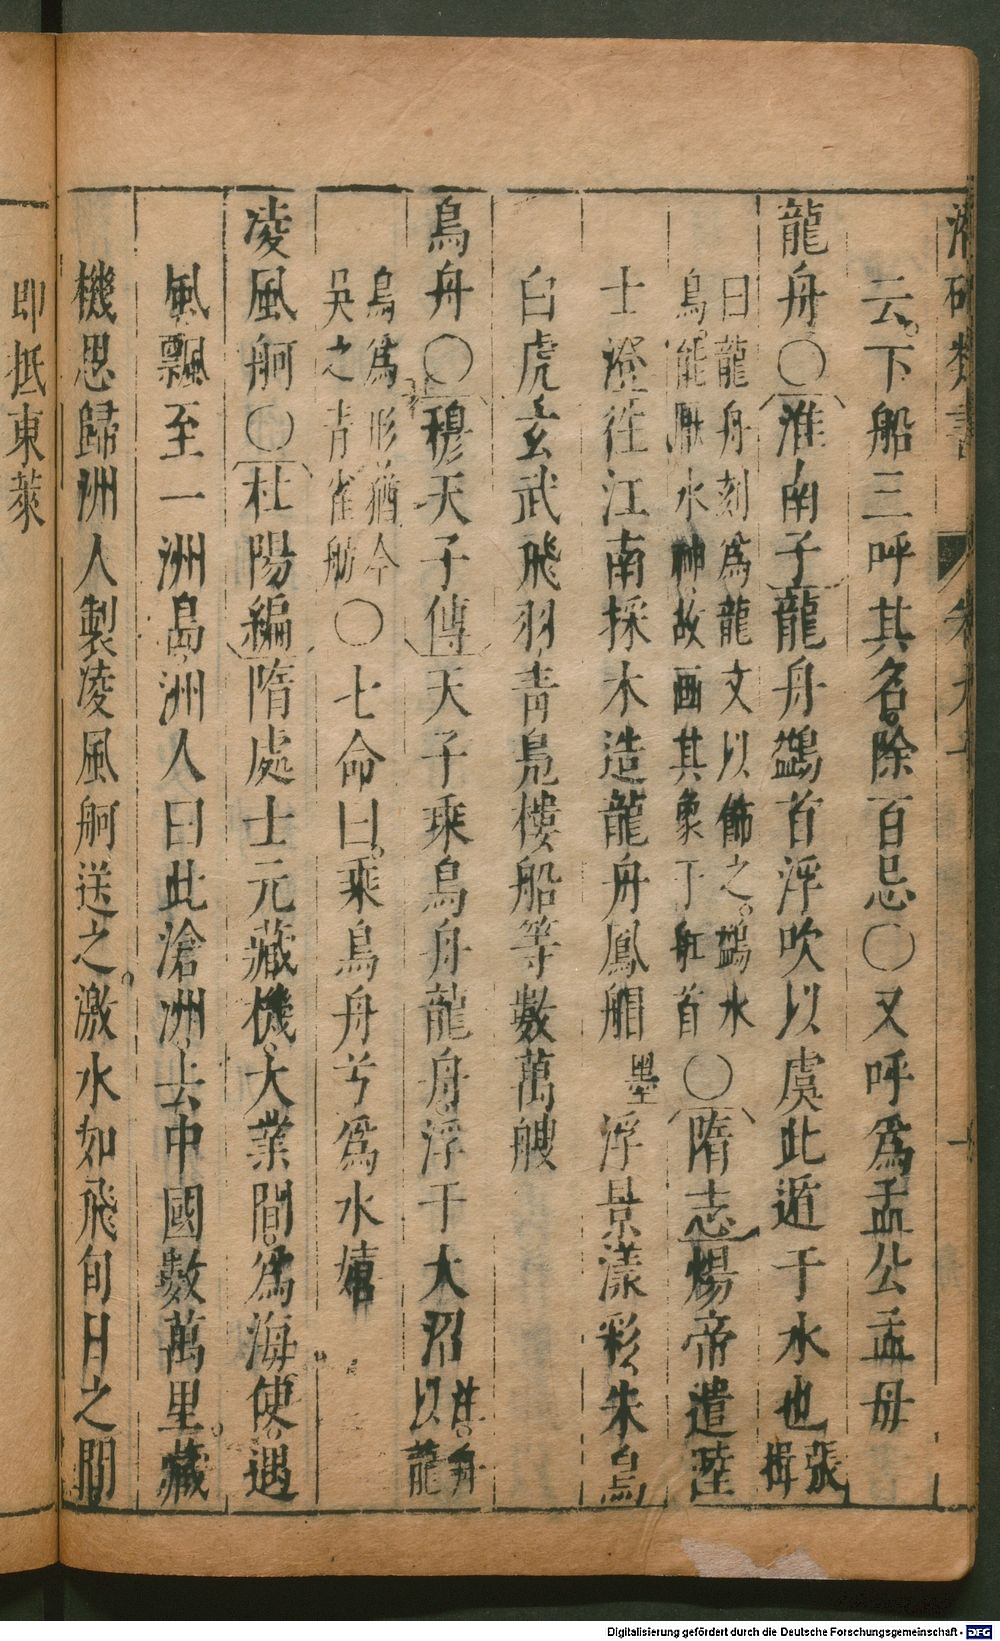 云下船三呼其名除百忌〇又呼爲孟公孟毋
龍舟〇淮南子龍舟鷁首浮吹以虞此遁于水也張揖
曰龍舟刻爲龍文以飾之鷁水
鳥能厭水神故画其象于舡首〇隋志煬帝遣
士澄往江南採木造龍舟鳳䑺墨浮景漾彩朱鳥
白虎玄武飛羽青鳧樓船等數萬艘
鳥舟〇穆天子傳天子乘鳥舟龍舟浮于大沼註舟以龍
鳥爲形猶今
吳之青雀舫〇七命曰乘鳥舟兮爲水嬉
凌風舸〇杜陽編隋處士元藏機大業間爲海使遇
風飄至一洲島洲人曰此滄洲去中國數萬里藏
機思歸洲人製凌風舸送之激水如飛旬日之間
即抵東萊
Digitalisierung gefördert durch die Deutsche Forschungsgemeinschaft - DFG